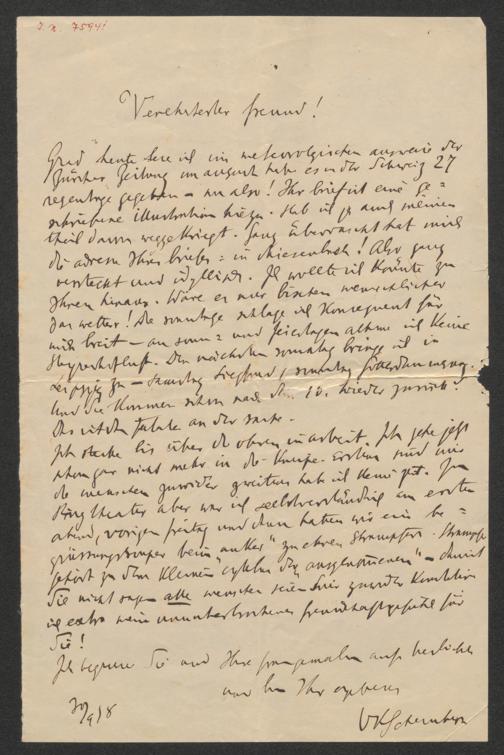 J.N. 75941
Verehrtester freund!
Grad heute lese ich im meteorologischen ausweis der
Zürcher Zeitung im august habe es in der Schweiz 27
regentage gegeben – nu also! Ihr brief ist eine ge=
schriebene illustration hiezu. Hab ich ja auch meinen
theil davon weggekriegt. Ganz überrascht hat mich
die adresse Ihres briefes = in Chiesenbach! Also ganz
versteckt und idyllisch. Ja wollte ich könnte zu
Ihnen hinaus. Wäre es nur bischen menschlicher
das wetter! Die sonntage schlage ich konsequent für
mich breit – an sonn= und feiertagen athme ich keine
. Den nächsten sonntag bringe ich in
Leipzig zu – samstag Siegfried, sonntag götterdämmerung.
Und Sie kommen schon nach dem 10. wieder zurück?
Das ist der fehler an der sache.
Ich stecke bis über die ohren in arbeit. Ich gehe jetzt
schon gar nicht mehr in die Kneipe. Erstens sind mir
die menschen zuwider zweitens hab ich keine zeit. Im
Ringtheater aber war ich selbstverständlich am ersten
abend, vorigen freitag und dann hatten wir ein be=
grüssungssouper beim "anker" zu ehren Strampfers. Strampfer
gehört zu dem kleinen cyklus der "ausgenommenen" – damit
Sie nicht sagen alle menschen seien mir zuwider konstatire
ich extra mein ununterbrochenes freundschaftsgefühl für
Sie!
Ich begrüsse Sie und Ihre frau gemalin aufs herzlichste
und bin Ihr ergebener
VKSchembera